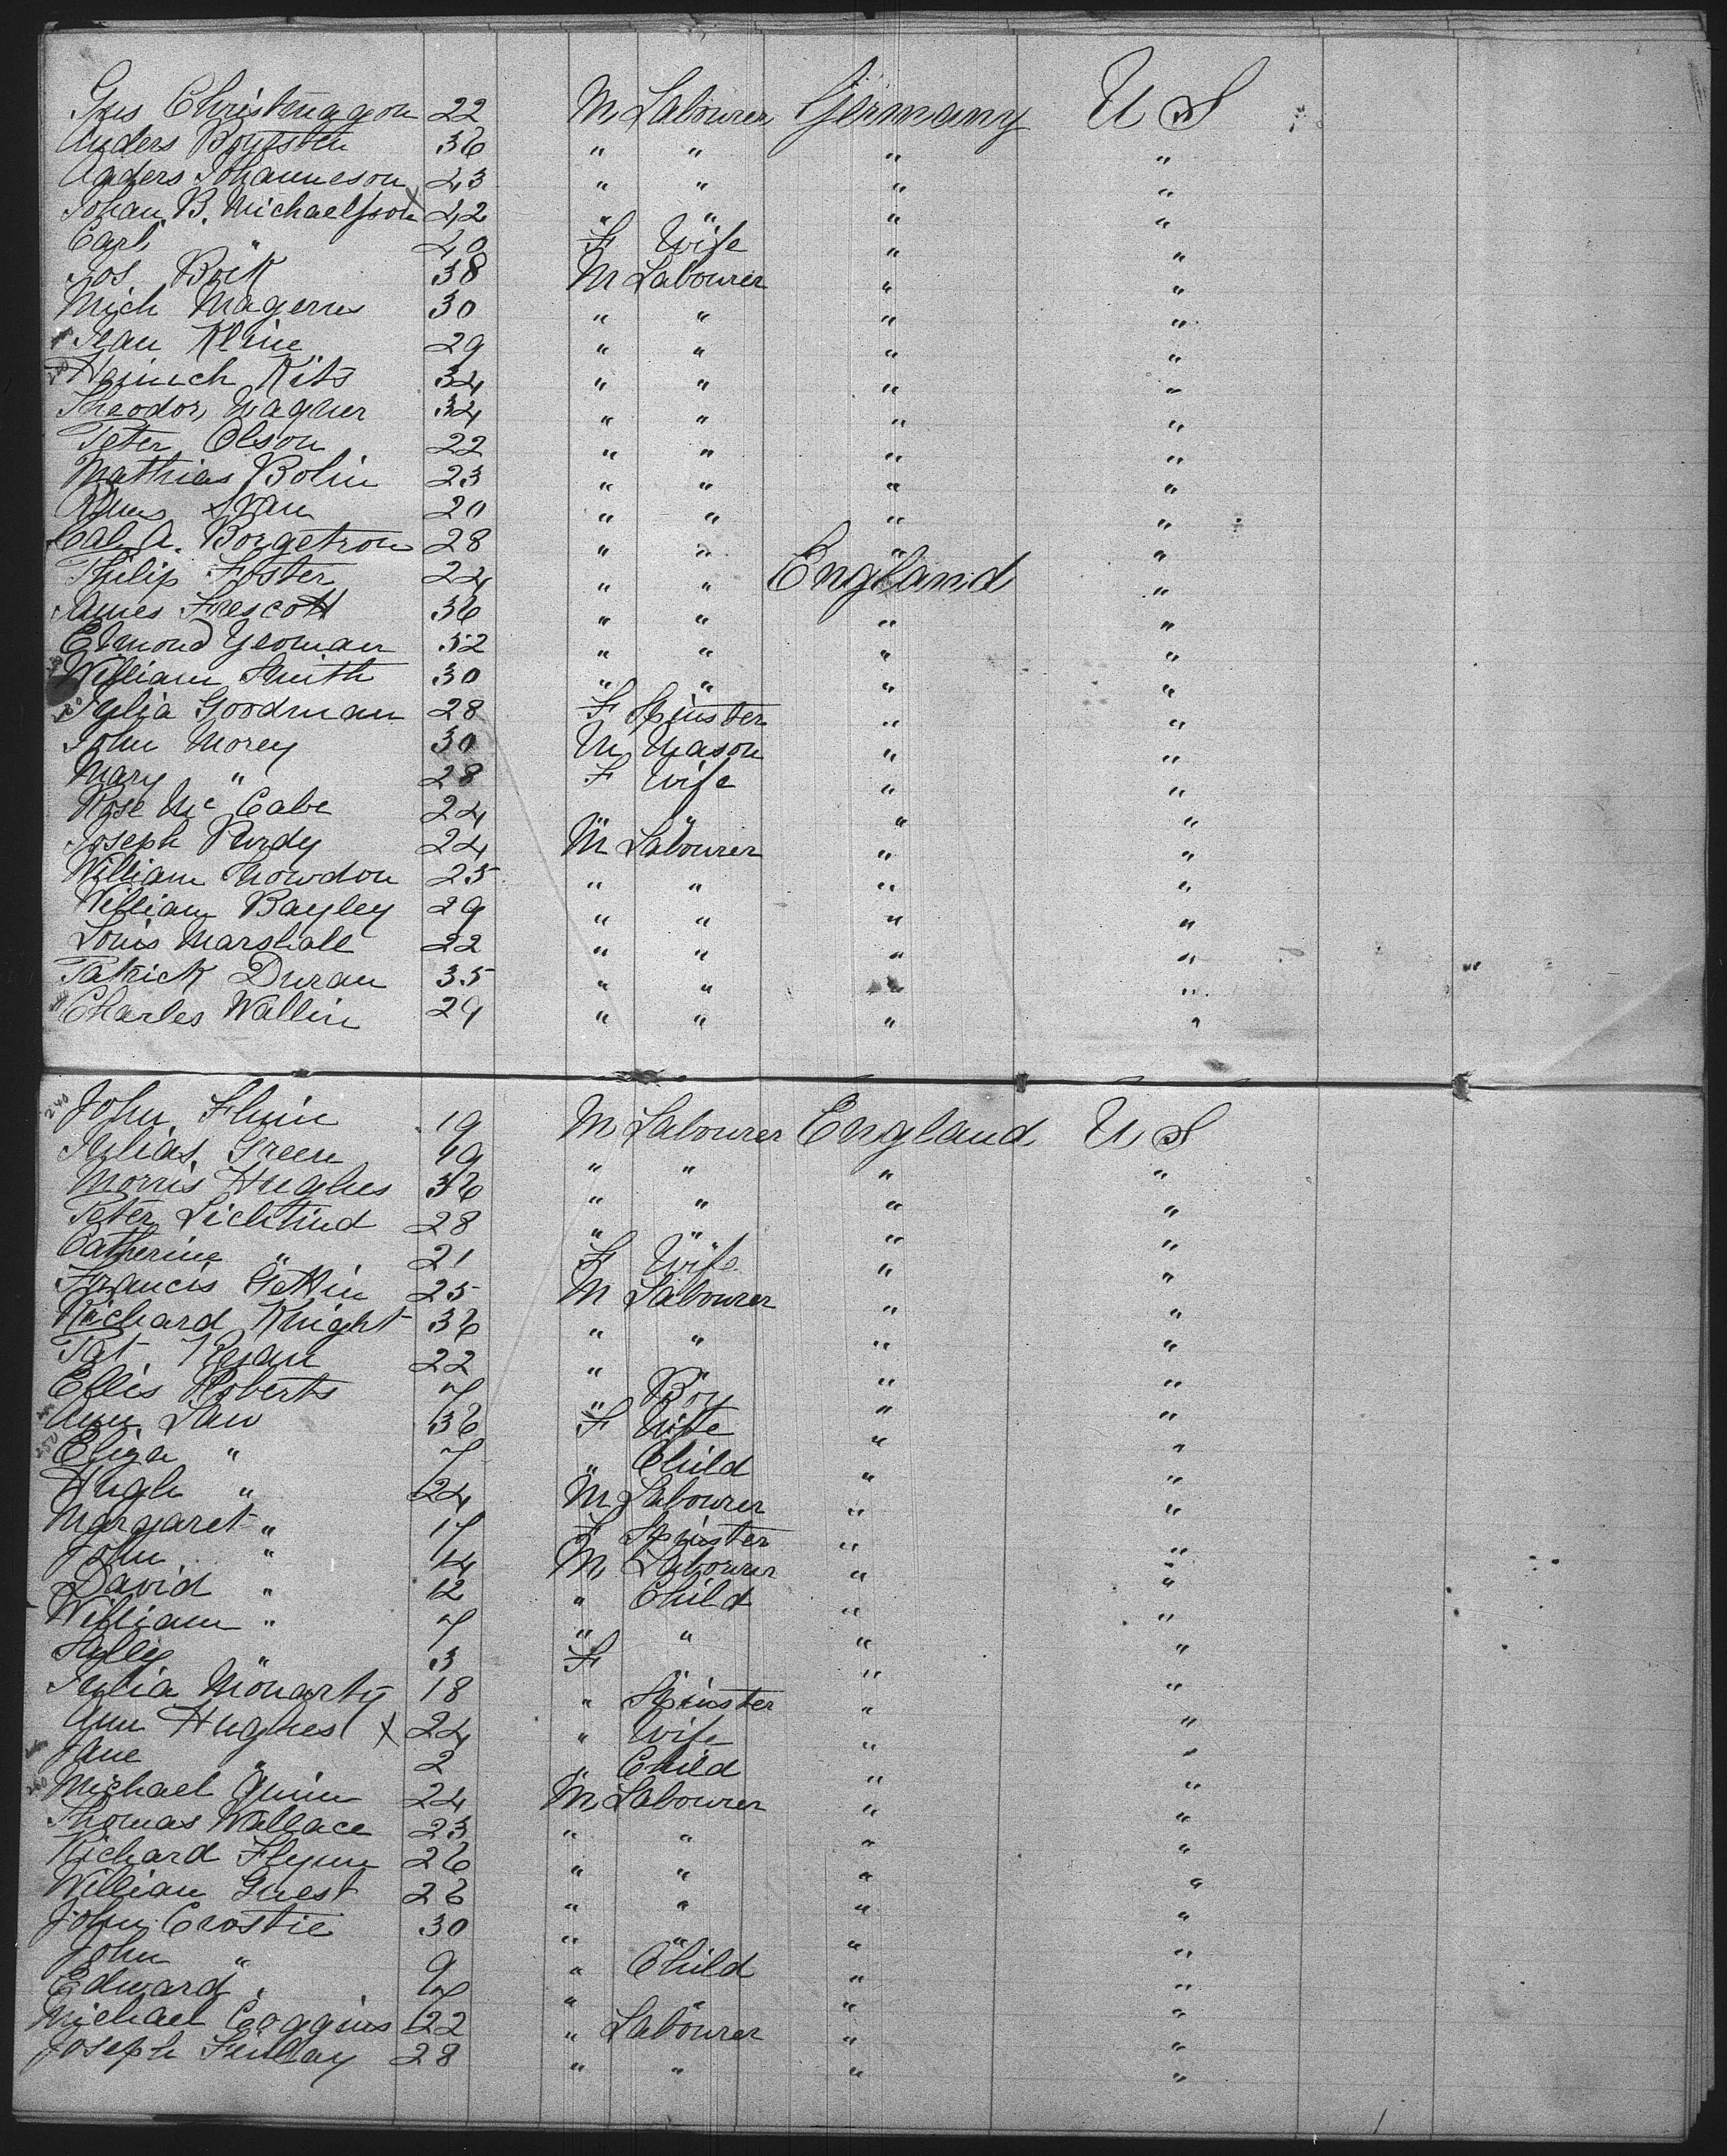 Gus Christenaggon 22 M Labourer Germany U S
Anders 36 " " " "
Anders Johanneson 43 " " " "
Johan B. Michaelsson 42 " " " "
Carl " 40 F Wife " "
Jos Boik 38 M Labourer " "
Mich Magerus 30 " " " "
Jean Kline 29 " " " "
Heinrich Kits 34 " " " "
Theodor Wagner 34 " " " "
Peter Olson 22 " " " "
Mathias Bolin 23 " " " "
Svan 20 " " " "
Carl A. Borgetrom 28 " " " "
Philip Foster 24 " " England "
James Frescott 36 " " " "
Edmond Yeoman 32 " " " "
William Smith 30 " " " "
Julia Goodman 28 F Spinster " "
John Morey 30 M Mason " "
Mary " 28 F Wife " "
Rose Mc Cabe 24 " " " "
Joseph Purdy 24 M Labourer " "
William Showdon 25 " " " "
William Bayley 29 " " " "
Louis Marshall 22 " " " "
Patrick Duran 35 " " " "
Charles Wallin 29 " " " "
240 John Flinn 19 M Labourer England U S
Julias Green 49 " " " "
Morris Hughes 36 " " " "
Peter Lichtind 28 " " " "
Catherine " 21 F Wife " "
Francis Getkin 25 M Labourer " "
Richard Knight 36 " " " "
Pat Ryan 22 " " " "
Ellis Roberts 7 " Boy " "
Ann Law 36 F Wife " "
250 Eliza " 7 " Child " "
Hugh " 24 M Labourer " "
Margaret " 17 F Spinster " "
John " 14 M Labourer " "
David " 12 " Child " "
William " 7 " " " "
Sally " 3 F " " "
Julia Monarty 18 " Spinster " "
Ann Hughes x 24 " Wife " "
Jane " 2 " Child " "
260 Michael Quinn 24 M Labourer " "
Thomas Wallace 23 " " " "
Richard Flynn 26 " " " "
William Guest 26 " " " "
John Crostie 30 " " " "
John " 9 " Child " "
Edward " 7 " " " "
Michael Coggins 22 " Labourer " "
Joseph Finlay 28 " " " "